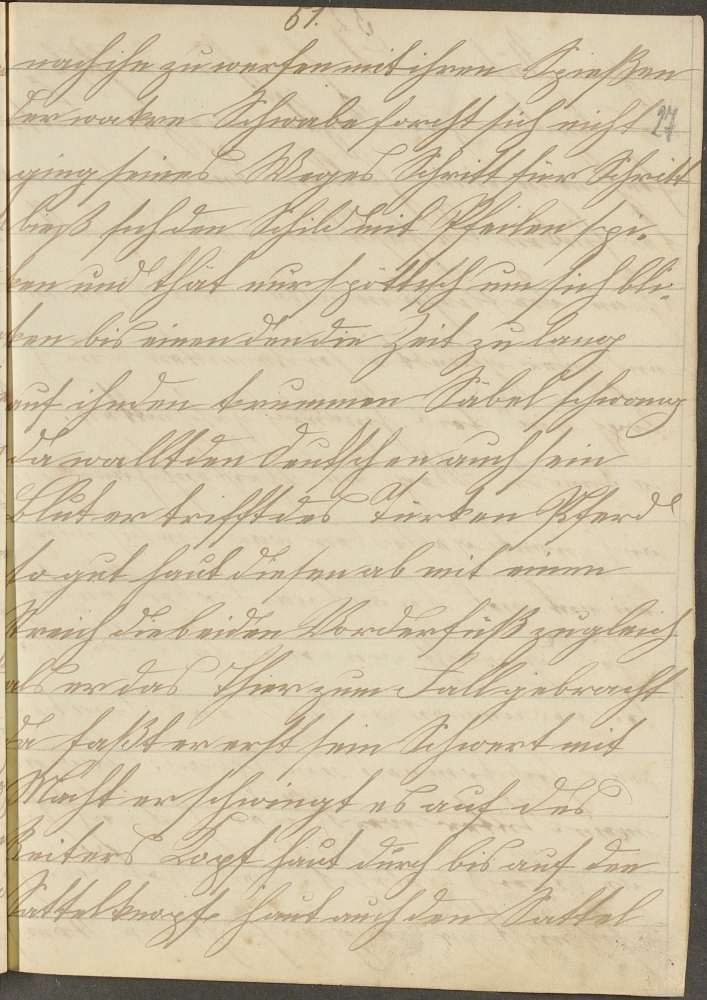 51.
27
nach ihn zu werfen mit ihren Spießen
der wakre Schwabe forcht sich nicht
ging seines Weges Schritt für Schritt
ließ sich den Schild mit Pfeilen spi-
ken und that nur spöttisch um sich bli-
ken bis einen den die Zeit zu lang
auf ihn den krummen Säbel schwang
da wallt den Deutschen auch sein
Blut er trifft des Türken Pferd
so gut haut diesen ab mit einen
Streich die beiden Vorderfüß zugleich
als er das Thier zum Fall gebracht
da faßt er erst sein Schwert mit
Macht er schwingt es auf des
Reiters Kopf haut durch bis auf den
Sattelknopf haut auch den Sattel